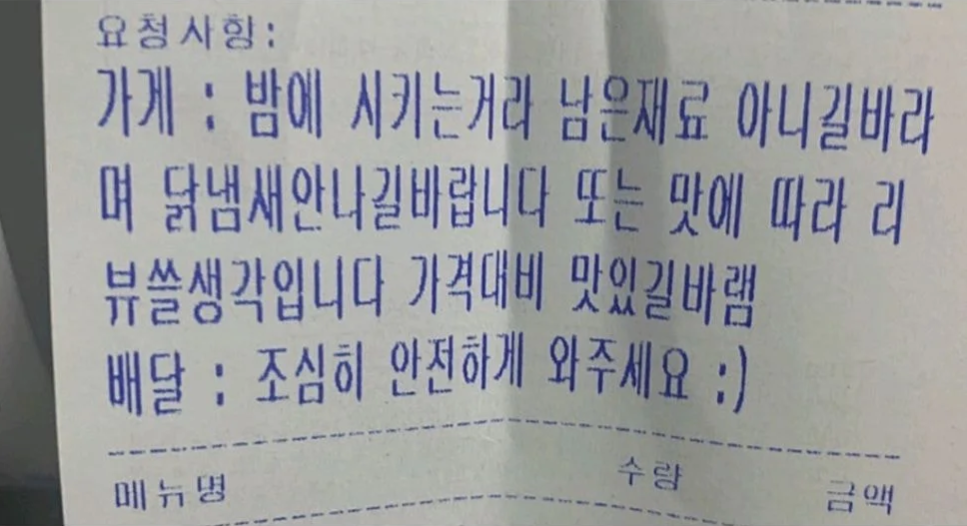 요청사항:
가게 : 밤에 시키는거라 남은재료 아니길바라
며 닭냄새안나길바랍니다 또는 맛에 따라 리
뷰쓸생각입니다 가격대비 맛있길바램
배달 : 조심히 안전하게 와주세요 :)
메뉴명 수량 금액